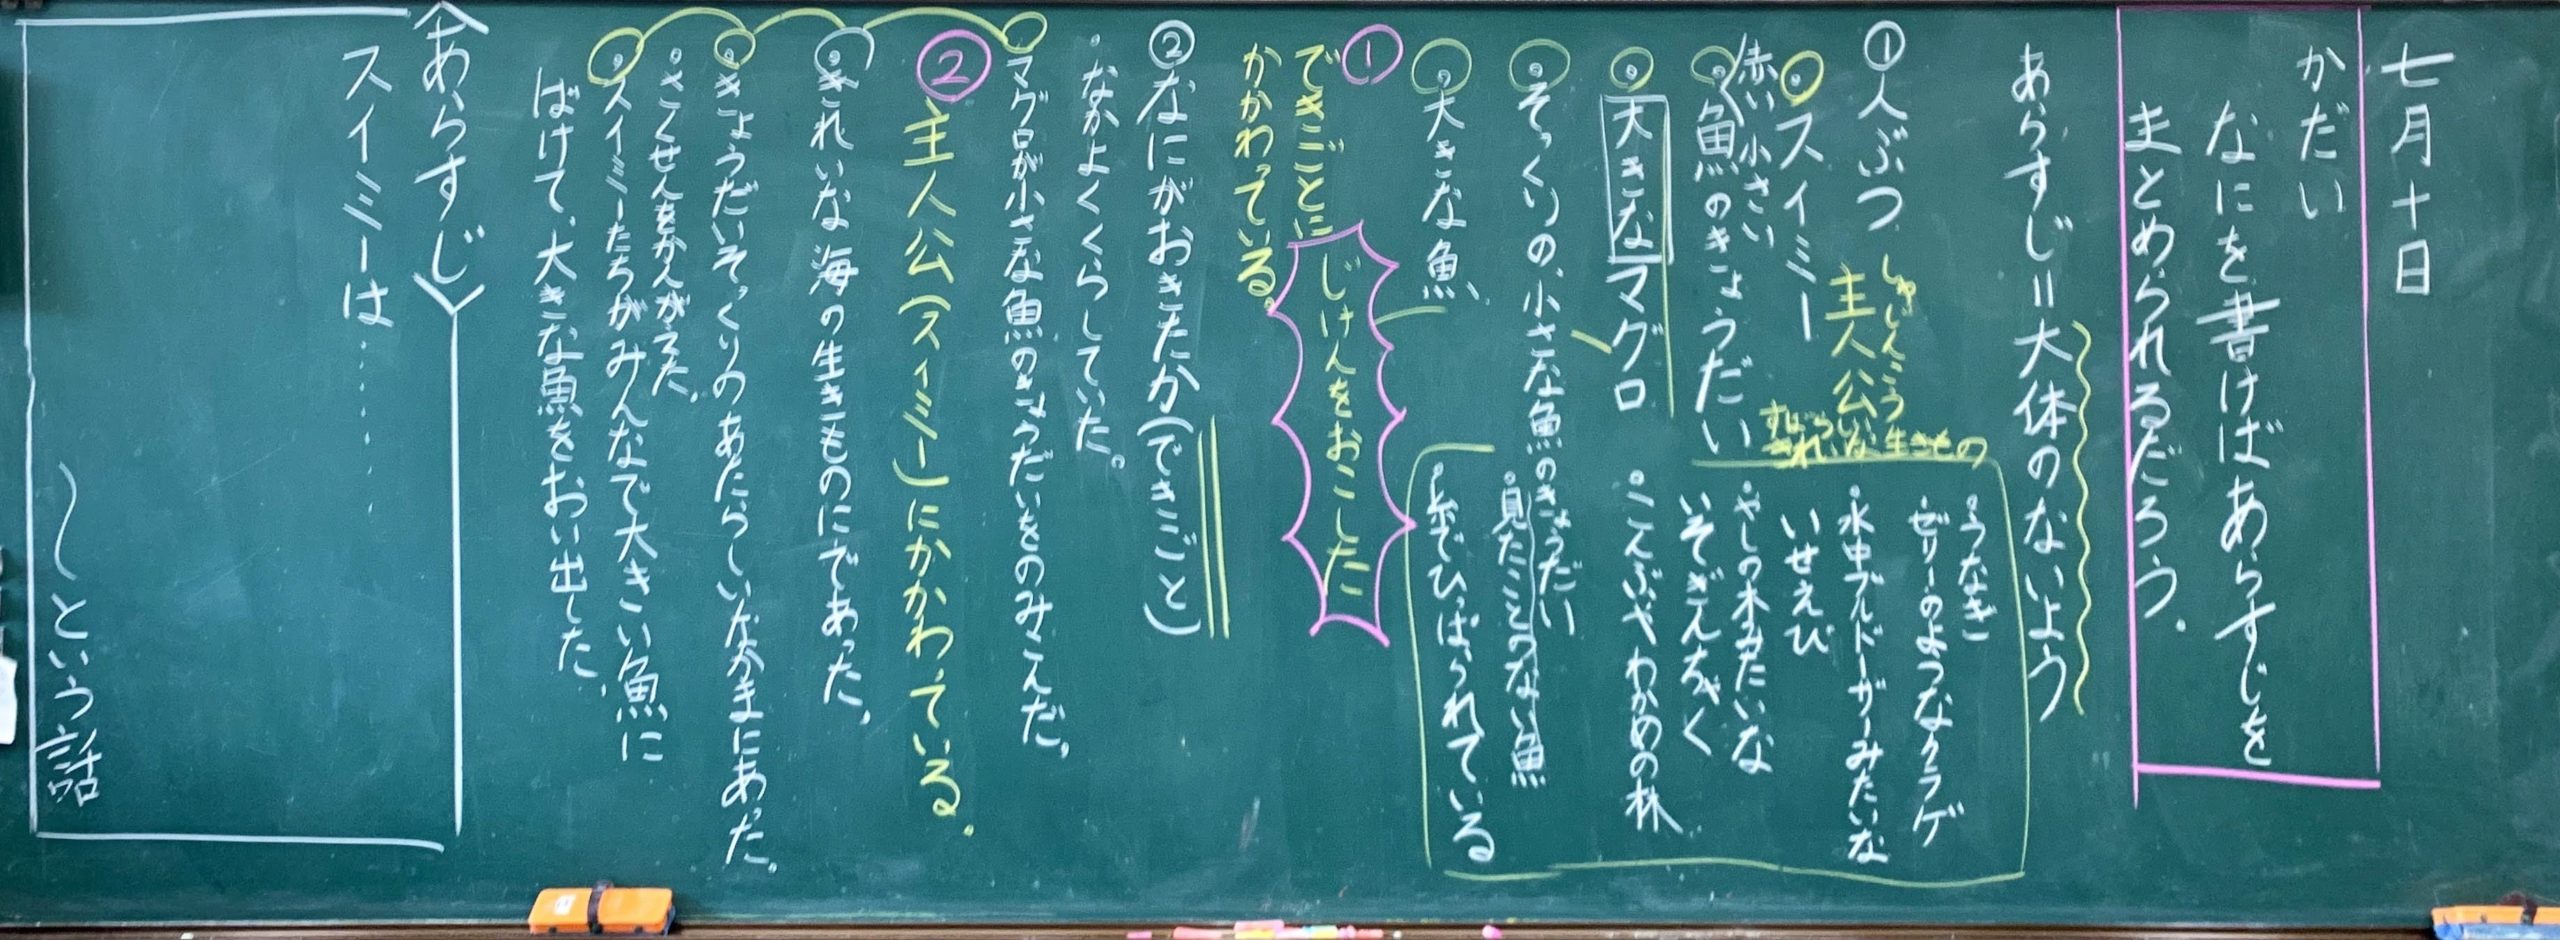 七月十日
かだい
なにを書けばあらすじを
まとめられるだろう。
あらすじ=大体のないよう
①人ぶつ
しゅじんこう
主人公
・スイミー
赤い小さい
・魚のきょうだい
・大きなマグロ
・そっくりの、小さな魚のきょうだい
・大きな魚、
すばらしい
きれいな生きもの
・うなぎ
ゼリーのようなクラゲ
・水中ブルドーザーみたいな
いせえび
・やしの木みたいな
いそぎんちゃく
・こんぶやわかめの林
・見たことのない魚
・糸でひっぱられている
①
できごとに
かかわっている。
じけんをおこした
②なにがおきたか(できごと)
・なかよくくらしていた。
・マグロが小さな魚のきょうだいをのみこんだ。
②主人公(スイミー)にかかわっている。
・きれいな海の生きものにであった。
・きょうだいそっくりのあたらしいなかまにあった。
・さくせんをかんがえた。
・スイミーたちがみんなで大きい魚に
ばけて、大きな魚をおい出した。
〈あらすじ〉
スイミーは……
〜という話